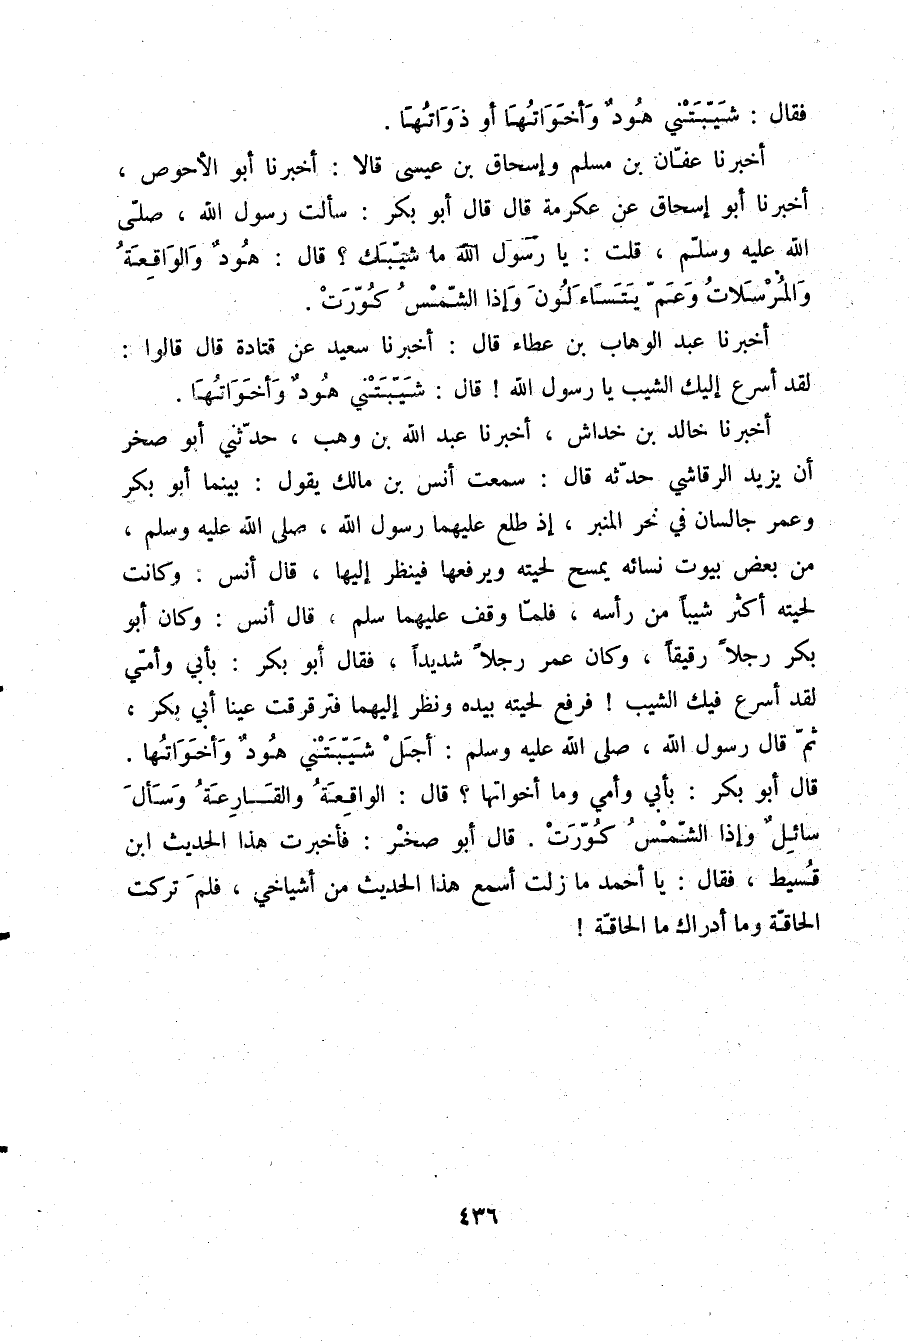 فقال : شَيَّبَتْني هُودٌ وَأخَوَاتُهَا أو ذَوَاتُهَا .
أخبرنا عفّان بن مسلم وإسحاق بن عيسى قالا : أخبرنا أبو الأحوص ،
أخبرنا أبو إسحاق عن عكرمة قال قال أبو بكر : سألت رسول الله ، صلّى
الله عليه وسلّم ، قلت : يا رسول الله ما شيّبك ؟ قال : هُودٌ وَالوَاقِعَةُ
وَالمُرْسَلاتُ وَعَمّ يَتَسَاءَلُونَ وَإذا الشّمْسُ كُوّرَتْ .
أخبرنا عبد الوهاب بن عطاء قال : أخبرنا سعيد عن قتادة قال قالوا :
لقد أسرع إليك الشيب يا رسول الله ! قال : شَيّبَتْني هُودٌ وَأخَوَاتُهَا .
أخبرنا خالد بن خداش ، أخبرنا عبد الله بن وهب ، حدّثني أبو صخر
أن يزيد الرقاشي حدّثه قال : سمعت أنس بن مالك يقول : بينما أبو بكر
وعمر جالسان في نحر المنبر ، إذ طلع عليهما رسول الله ، صلى الله عليه وسلم ،
من بعض بيوت نسائه يمسح لحيته ويرفعها فينظر إليها ، قال أنس : وكانت
لحيته أكثر شيباً من رأسه ، فلمّا وقف عليهما سلم ، قال أنس : وكان أبو
بكر رجلاً رقيقاً ، وكان عمر رجلاً شديداً ، فقال أبو بكر : بأبي وأمّي
لقد أسرع فيك الشيب ! فرفع لحيته بيده ونظر إليهما فترقرقت عينا أبي بكر ،
ثمّ قال رسول الله ، صلى الله عليه وسلم : أجَلْ شَيّبَتْني هُودٌ وَأخَوَاتُها .
قال أبو بكر : بأبي وأمي وما أخواتها ؟ قال : الواقِعَةُ والقَارِعَةُ وَسَألَ
سائِلٌ وإذا الشّمْسُ كُوّرَتْ . قال أبو صخْر : فأخبرت هذا الحديث ابن
قُسيط ، فقال : يا أحمد ما زلت أسمع هذا الحديث من أشياخي ، فلمَ تركت
الحاقّة وما أدراك ما الحاقّة !
٤٣٦